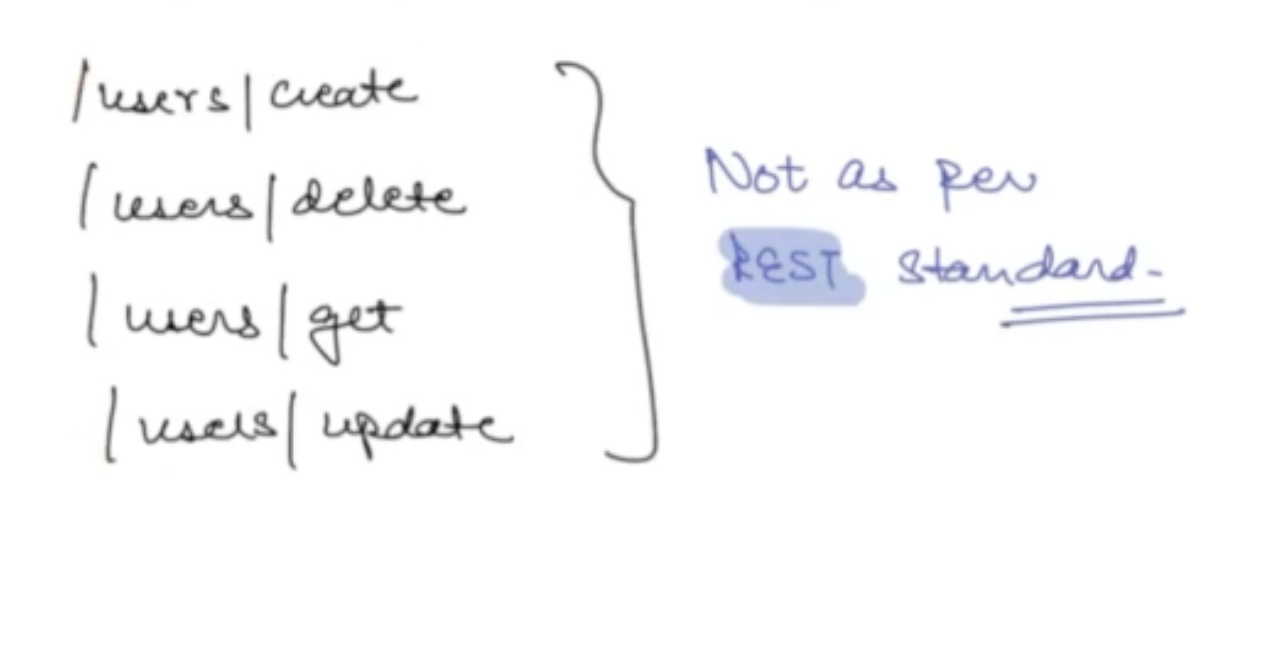 /users/create
/users/delete
/users/get
/users/update
Not as per
REST standard.